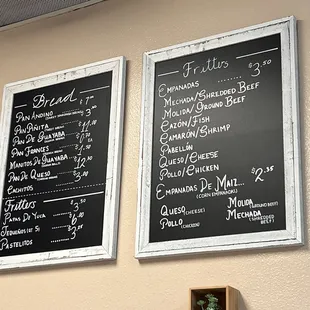 Bread
Pan Andino $7.
Pan Piñita $3.
Pan De Guayaba
Pan Frances
Manitos De Guayaba
Pan De Queso
Cachitos
Fritters
Papas De Yuca
Tequeños
Pastelitos
Fritters
Empanadas $3.50
Mechada/Shredded Beef
Molida/Ground Beef
Cazón/Fish
Camarón/Shrimp
Pabellón
Queso/Cheese
Pollo/Chicken
Empanadas De Maiz... $2.35
(Corn Empanadas)
Queso (Cheese) Molida (Ground Beef)
Pollo (Chicken) Mechada (Shredded Beef)